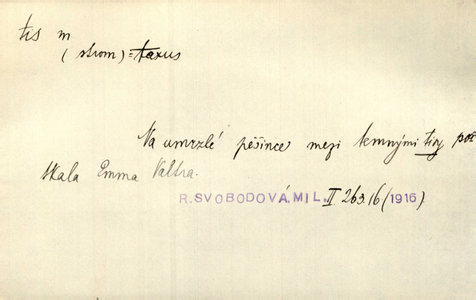 tis m
(strom) = taxus
Na umrzlé pěšince mezi temnými tisy pot
kala Emma Valtra.
R. SVOBODOVÁ, MIL. II 263/6 (1916)